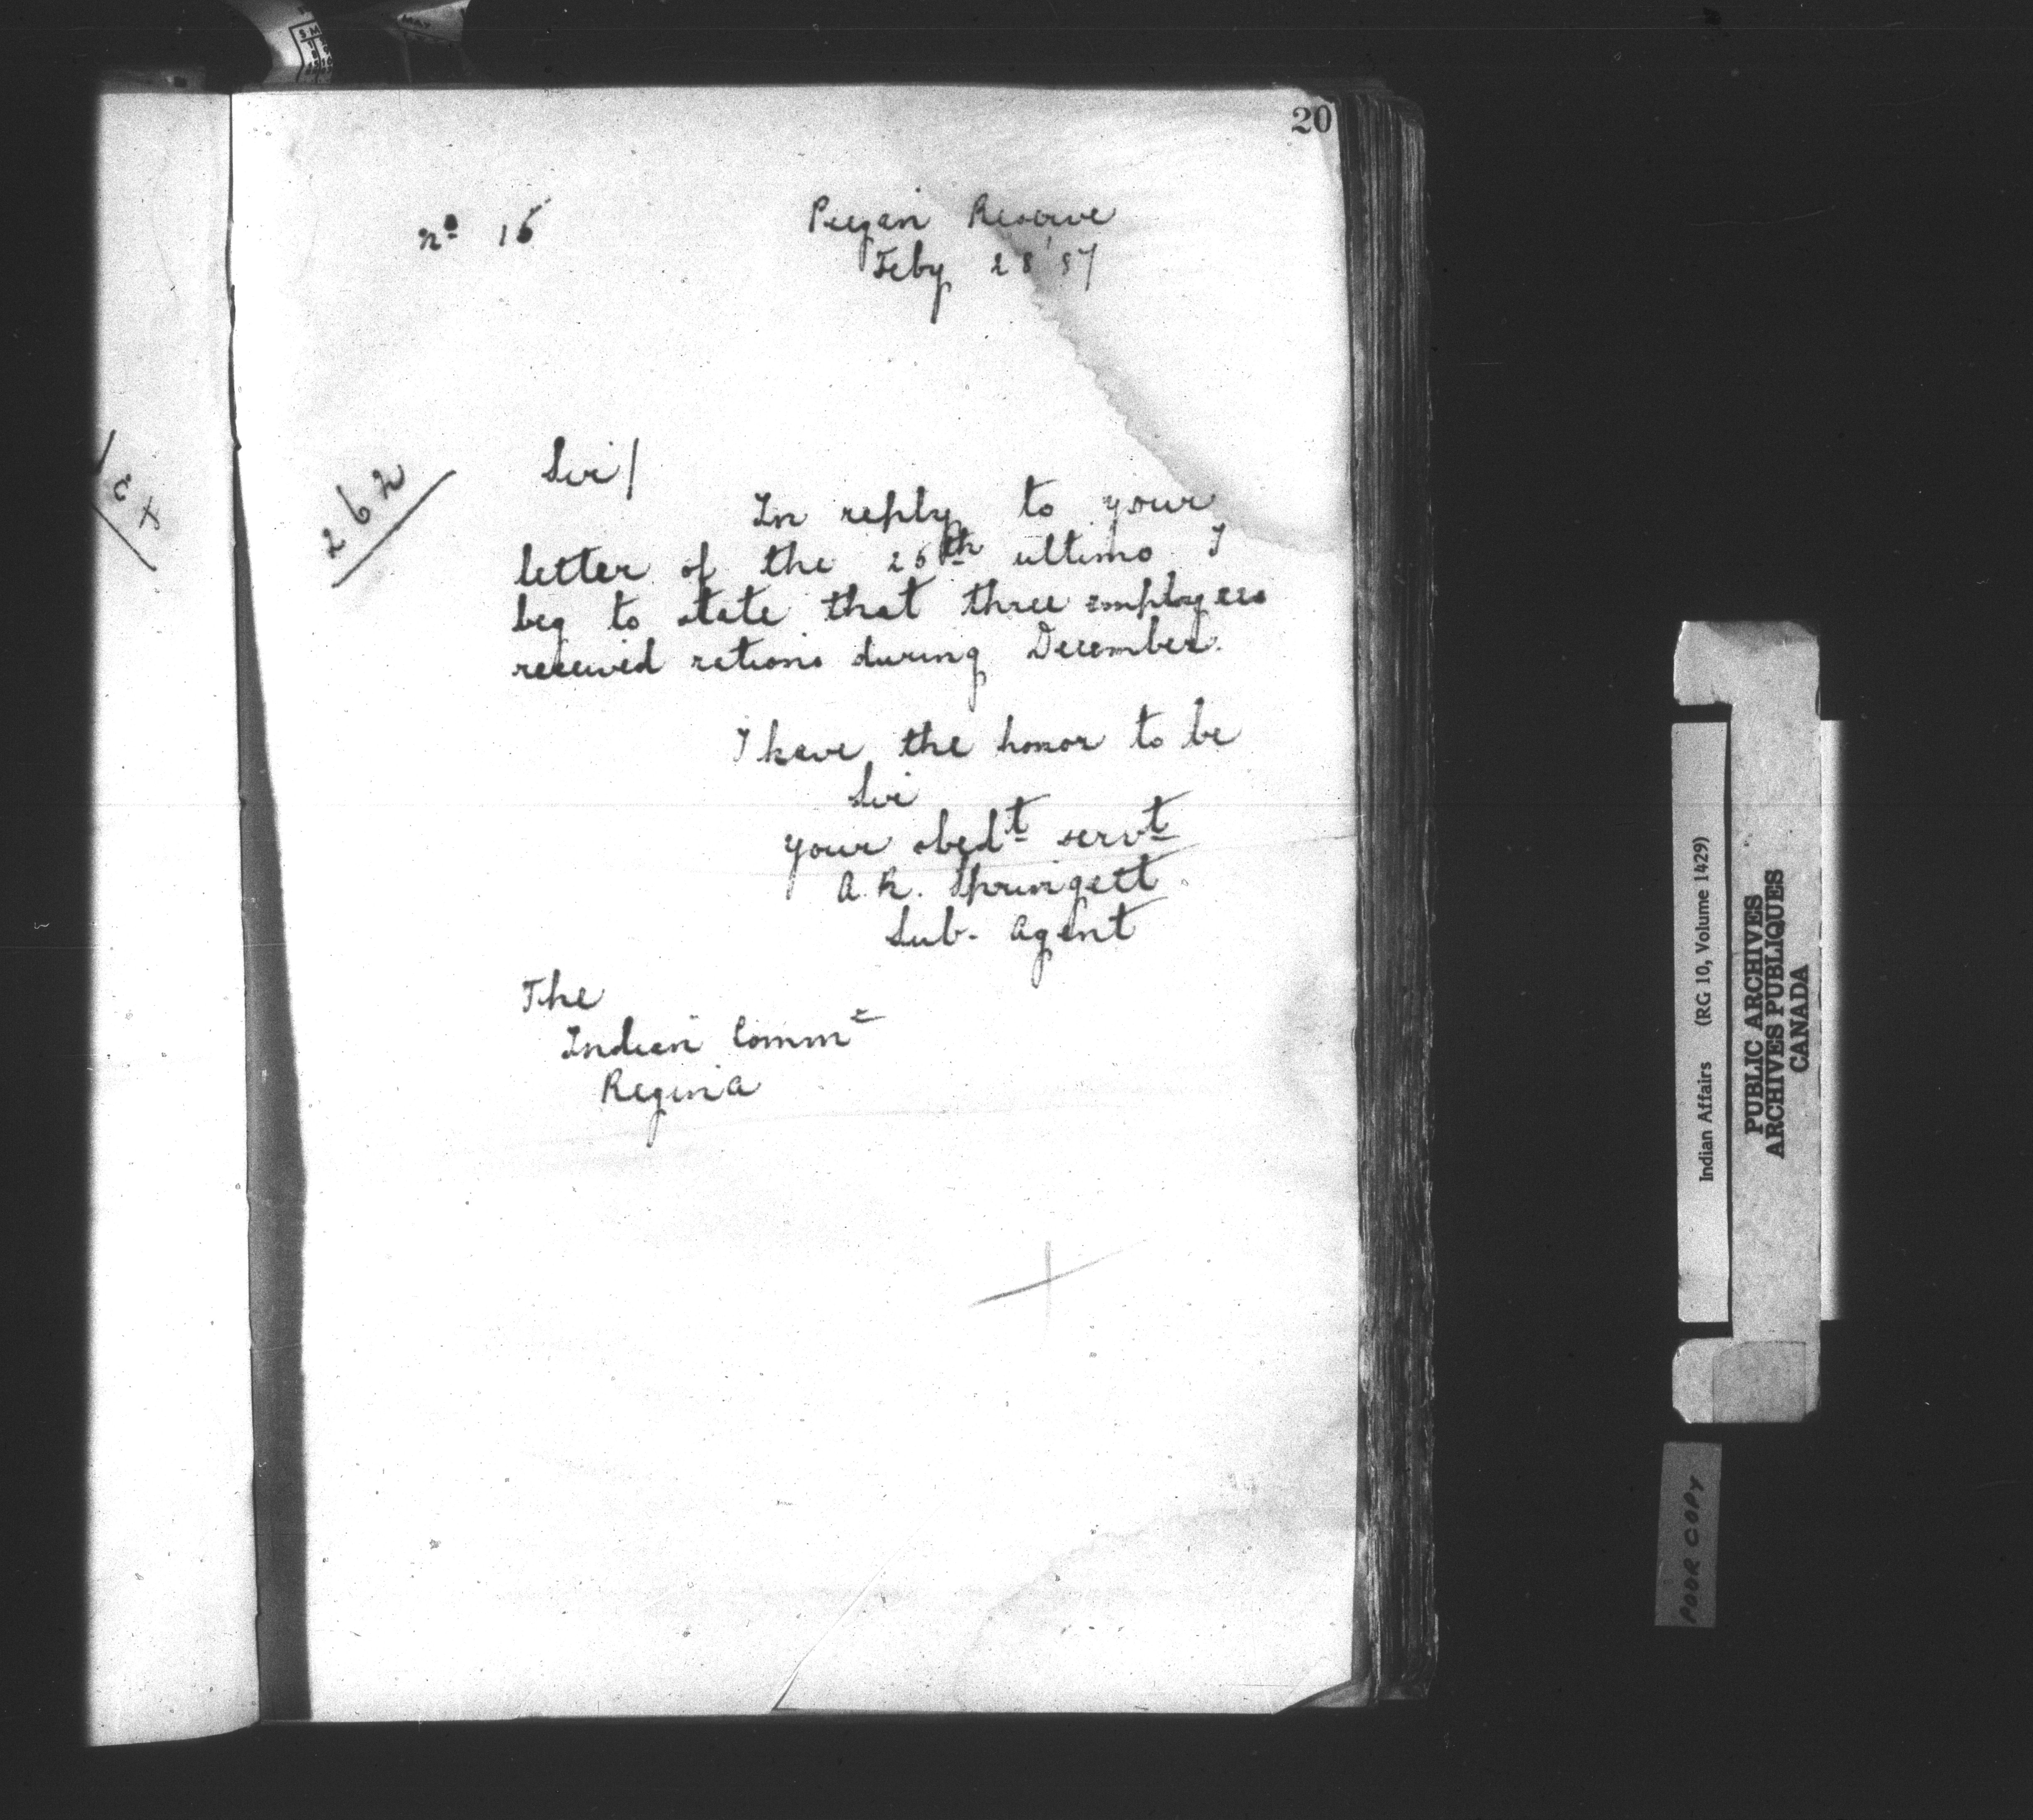 20
No 15
Peigan Reserve
Feby 28 '87
262
Sir/
In reply to your
letter of the 25th ultimo I
beg to state that three employees
received rations during December.
I have the honor to be
Sir
your obedt servt
A.R. Springett
Sub-Agent
The
Indian Commr
Regina
Indian Affairs (RG 10, Volume 1429)
PUBLIC ARCHIVES
ARCHIVES PUBLIQUES
CANADA
POOR COPY